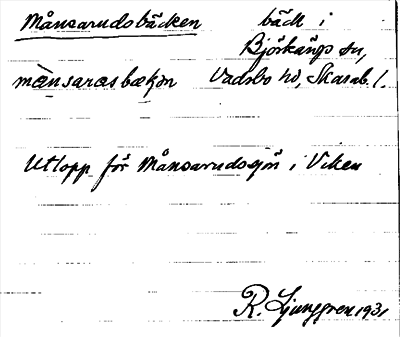 Månsarudsbäcken bäck i
Björkängs sn,
mànsarasbækən Vadsbo hd, Skarab. l.
Utlopp för Månsarudssjön i Viken
R. Ljunggren 1931